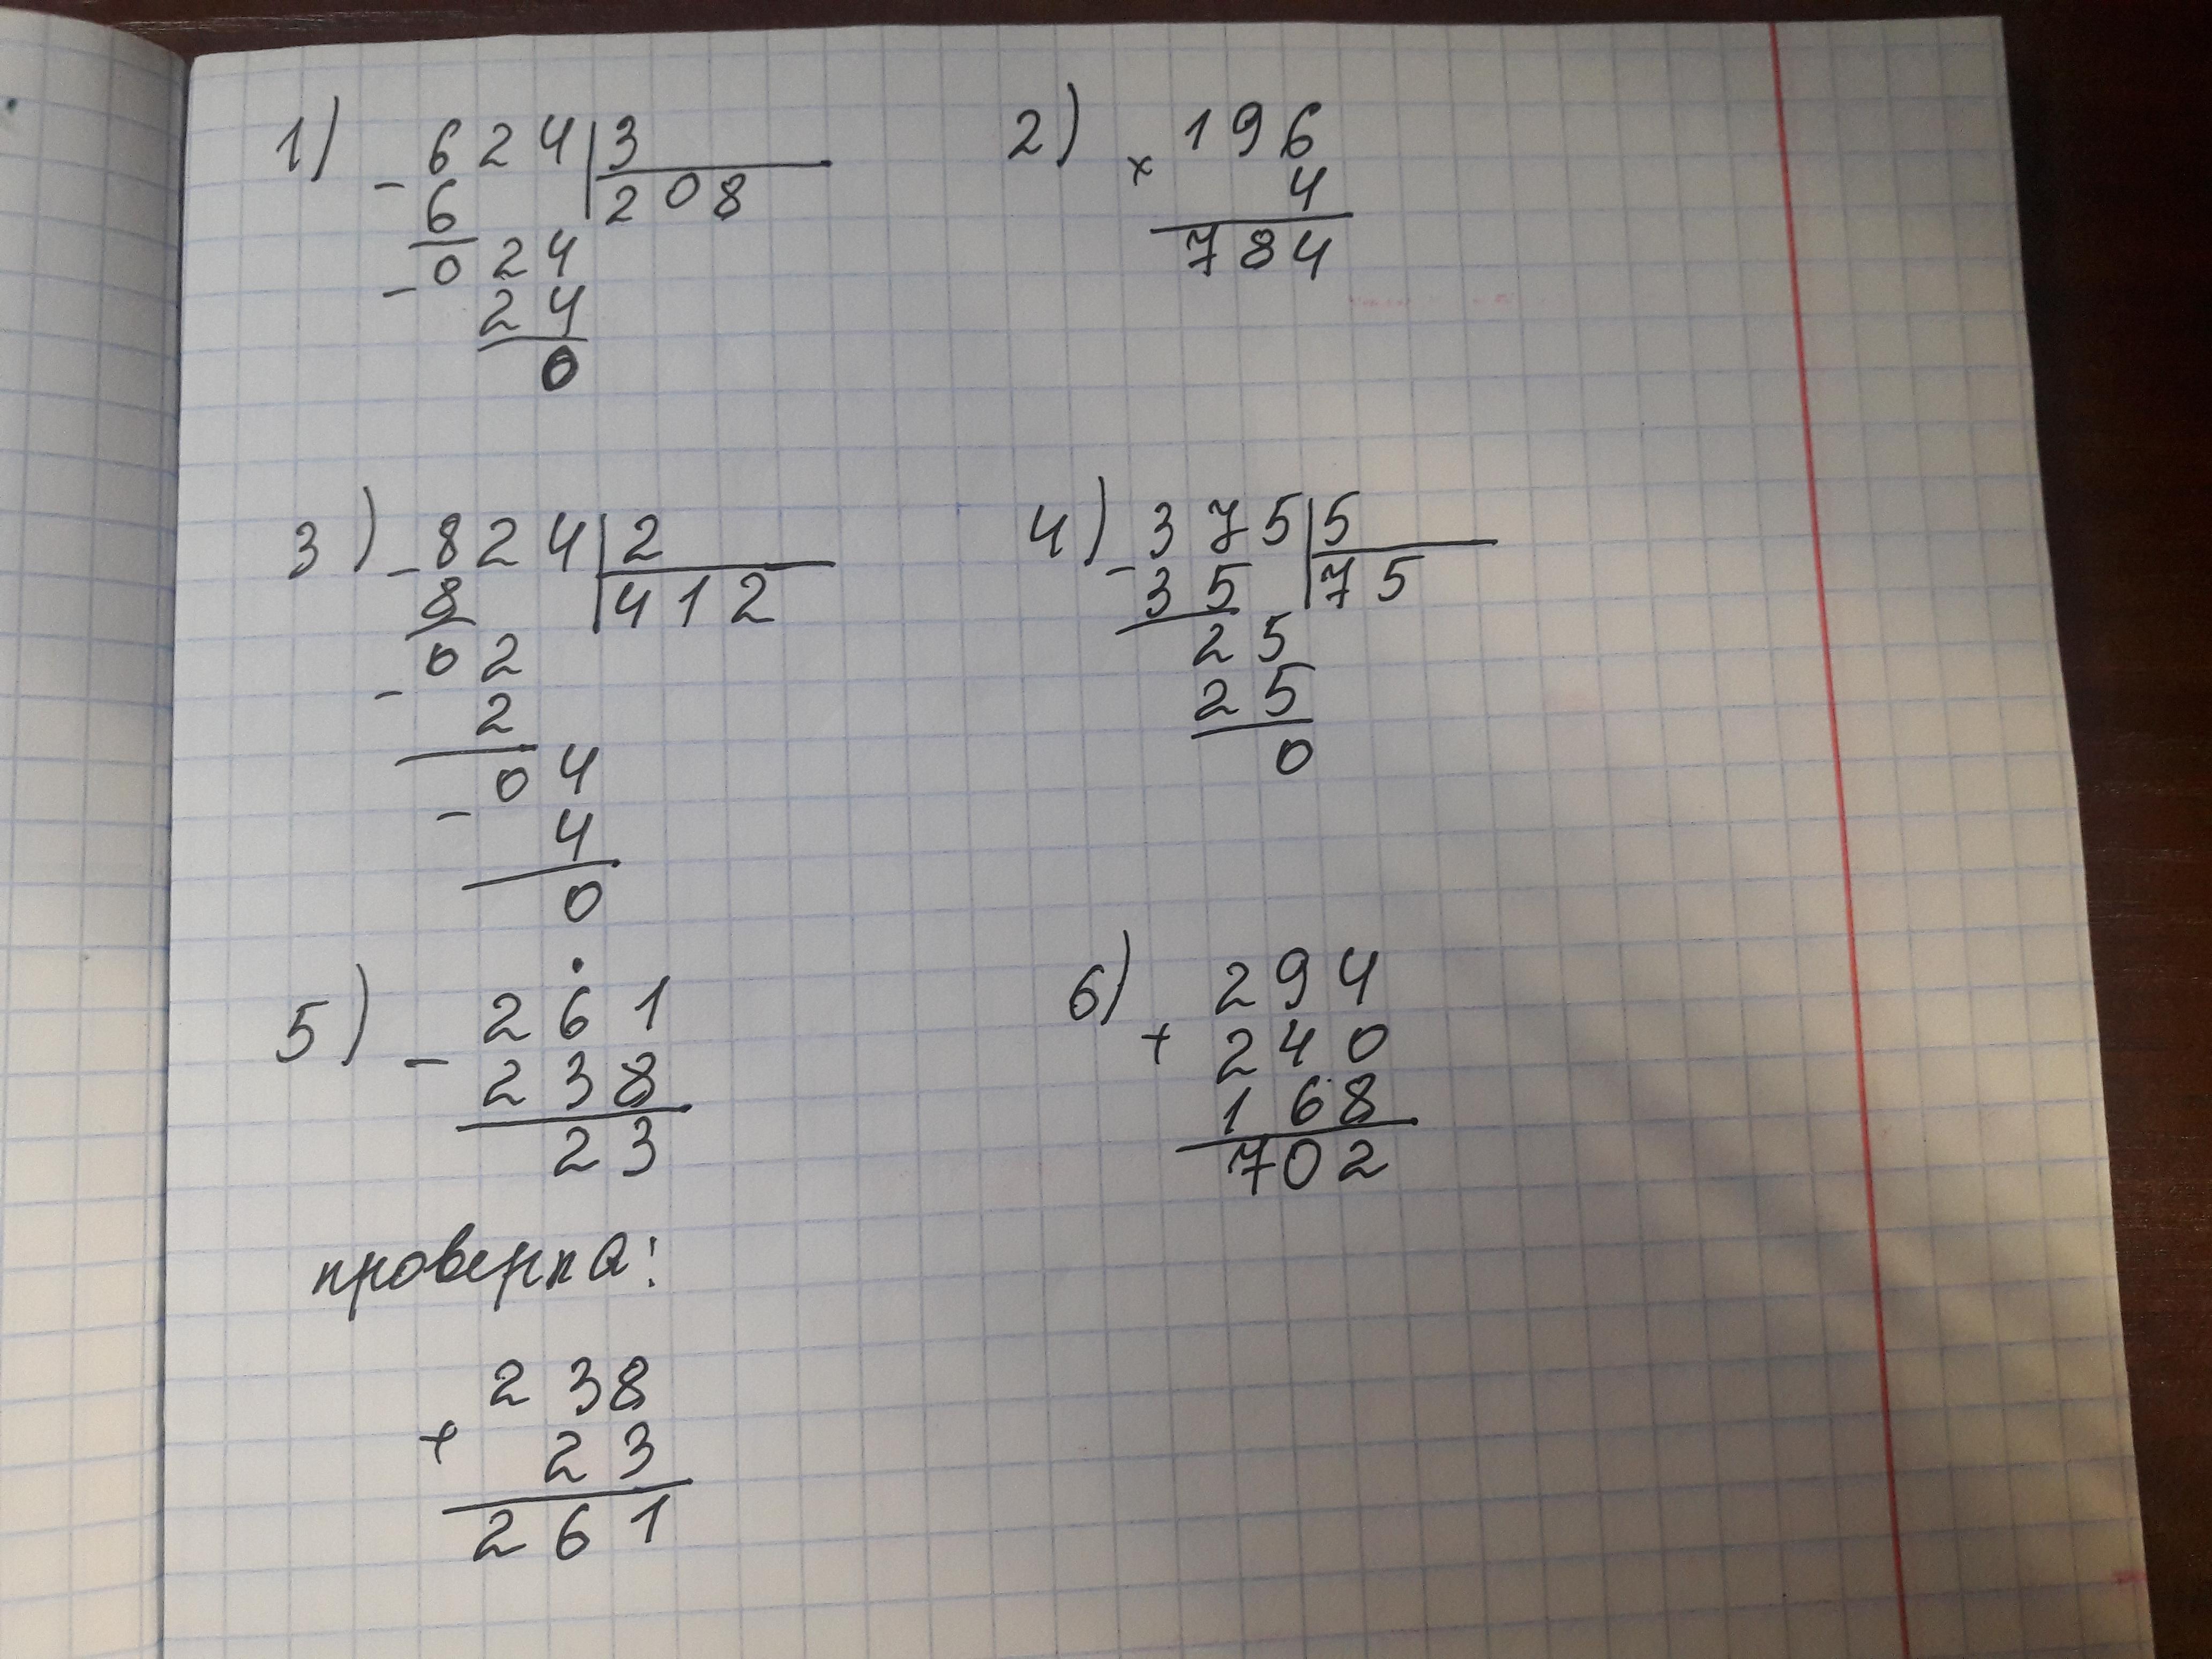 1) - 624 | 3
6 | 208
- 024
24
0
2) × 196
4
784
3) - 824 | 2
8 | 412
- 02
2
- 04
4
0
4) - 375 | 5
35 | 75
25
25
0
5) - 261
238
23
проверка:
238
+ 23
261
6) 294
+ 240
168
702